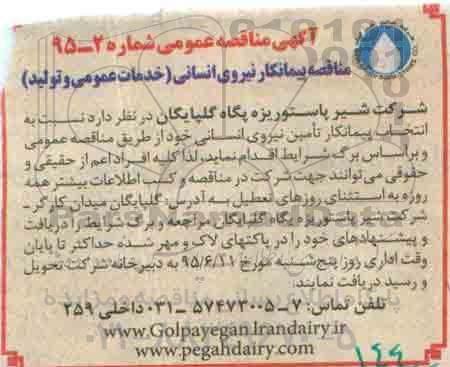 آگهی مناقصه عمومی شماره ۲-۹۵
مناقصه پیمانکار نیروی انسانی (خدمات عمومی و تولید)
شرکت شیر پاستوریزه پگاه گلپایگان در نظر دارد نسبت به
انتخاب پیمانکار تأمین نیروی انسانی خود از طریق مناقصه عمومی
و براساس برگ شرایط اقدام نماید، لذا کلیه افراد اعم از حقیقی و
حقوقی می‌توانند جهت شرکت در مناقصه و کسب اطلاعات بیشتر همه
روزه به استثنای روزهای تعطیل به آدرس: گلپایگان میدان کارگر-
شرکت شیر پاستوریزه پگاه گلپایگان مراجعه و برگ شرایط را دریافت
و پیشنهادهای خود را در پاکتهای لاک و مهر شده حداکثر تا پایان
وقت اداری روز پنج‌شنبه مورخ ۹۵/۶/۱۱ به دبیرخانه شرکت تحویل
و رسید دریافت نمایند.
تلفن تماس: ۷-۵۷۴۷۳۰۰۵-۰۳۱ داخلی ۲۵۹
www.Golpayegan.Irandairy.ir
www.pegahdairy.com